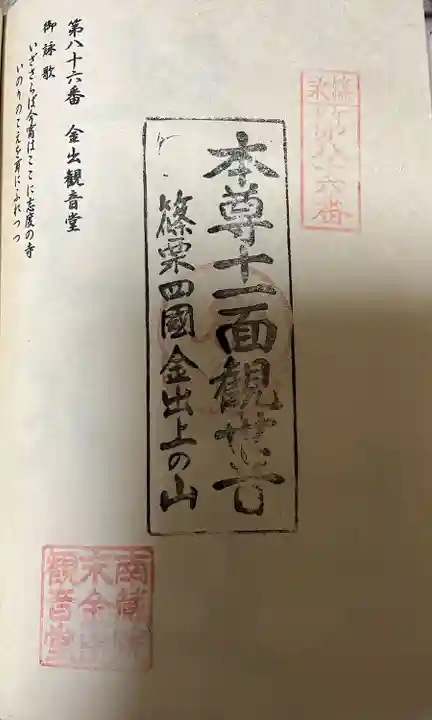 第八十六番
本尊十一面観世音
篠栗四國金出上の山
第八十六番 金出観音堂
御詠歌
いざさらば今宵はここに志度の寺
いのりのこえを耳にふれつつ
南蔵院
末金出
観音堂